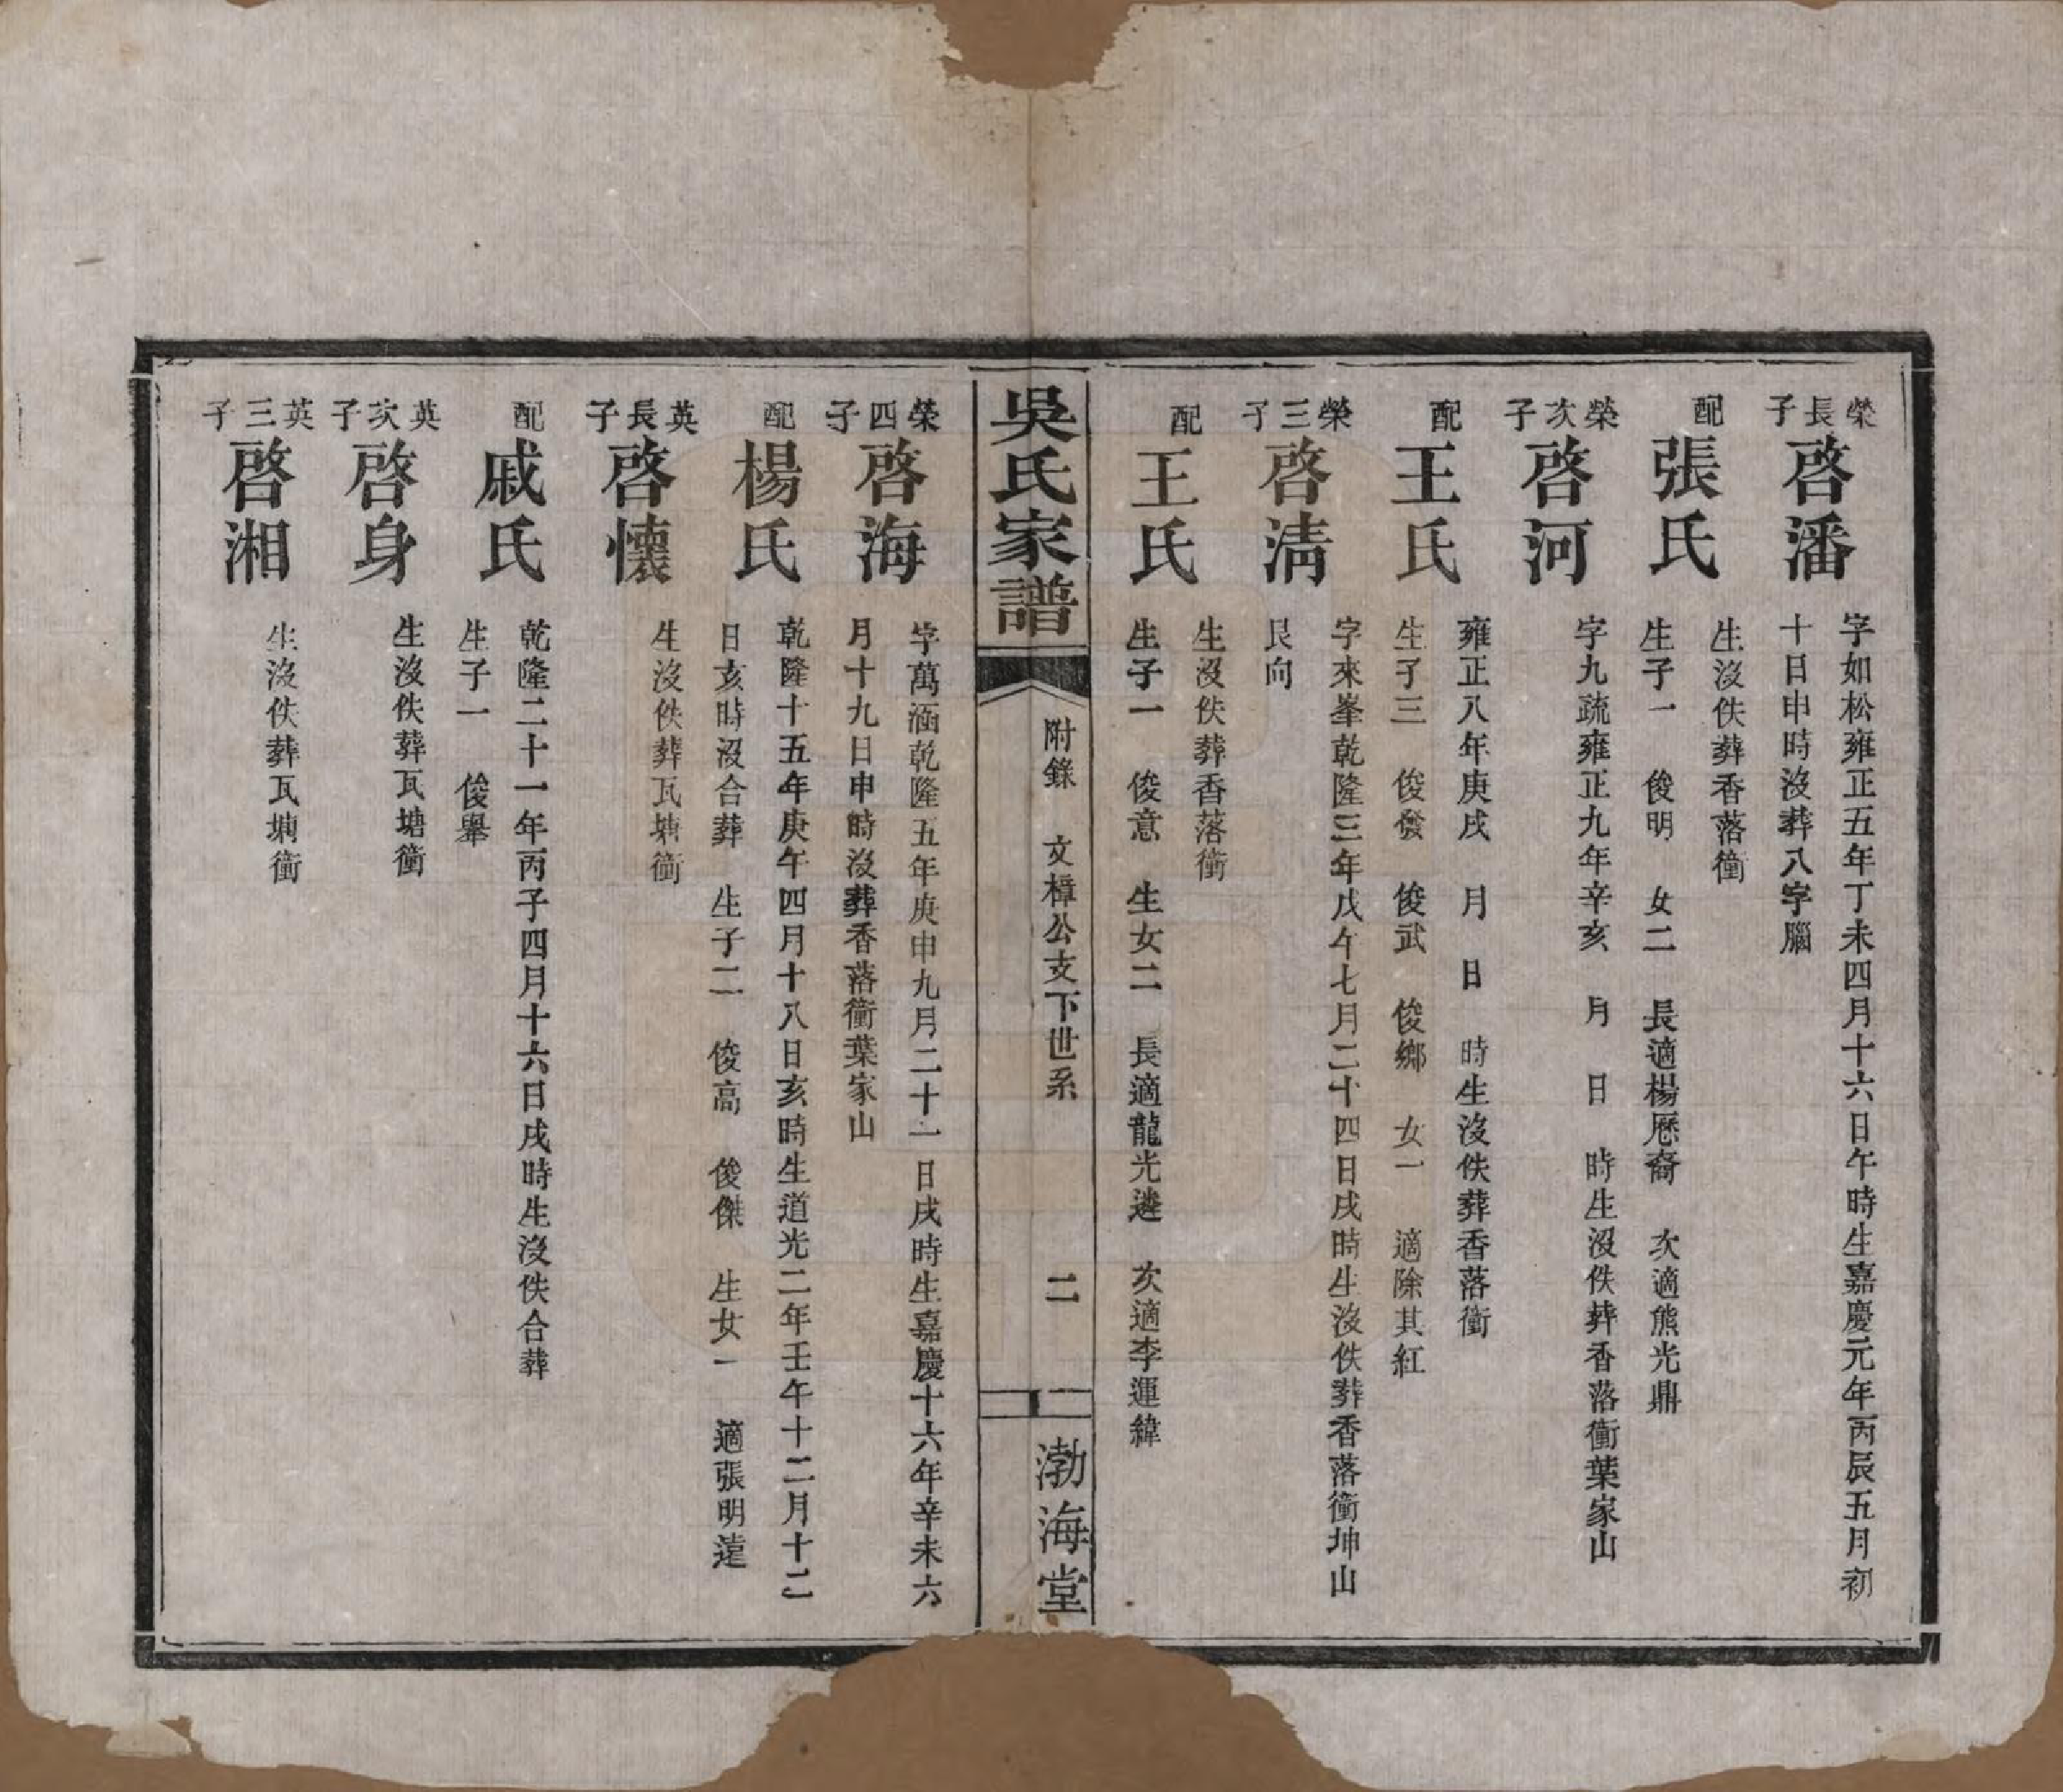 榮長子
啓潘
字如松雍正五年丁未四月十六日午時生嘉慶元年丙辰五月初
十日申時沒葬八字腦
配
張氏
生沒佚葬香落衝
生子一　俊明　女二　長適楊厯裔　次適熊光鼎
榮次子
啓河
字九疏雍正九年辛亥　月　日　時生沒佚葬香落衝葉家山
配
王氏
雍正八年庚戌　月　日　時生沒佚葬香落衝
生子三　俊發　俊武　俊鄉　女一　適除其紅
榮三子
啓淸
字來峯乾隆三年戊午七月二十四日戌時生沒佚葬香落衝坤山
艮向
配
王氏
生沒佚葬香落衝
生子一　俊意　生女二　長適龍光遴　次適李運緯
吳氏家譜
附錄　文樟公支下世系
二
渤海堂
榮四子
啓海
字萬涵乾隆五年庚申九月二十一日戌時生嘉慶十六年辛未六
月十九日申時沒葬香落衝葉家山
配
楊氏
乾隆十五年庚午四月十八日亥時生道光二年壬午十二月十二
日亥時沒合葬　生子二　俊高　俊傑　生女一　適張明遠
英長子
啓懷
生沒佚葬瓦塘衝
配
戚氏
乾隆二十一年丙子四月十六日戌時生沒佚合葬
生子一　俊舉
英次子
啓身
生沒佚葬瓦塘衝
英三子
啓湘
生沒佚葬瓦塘衝